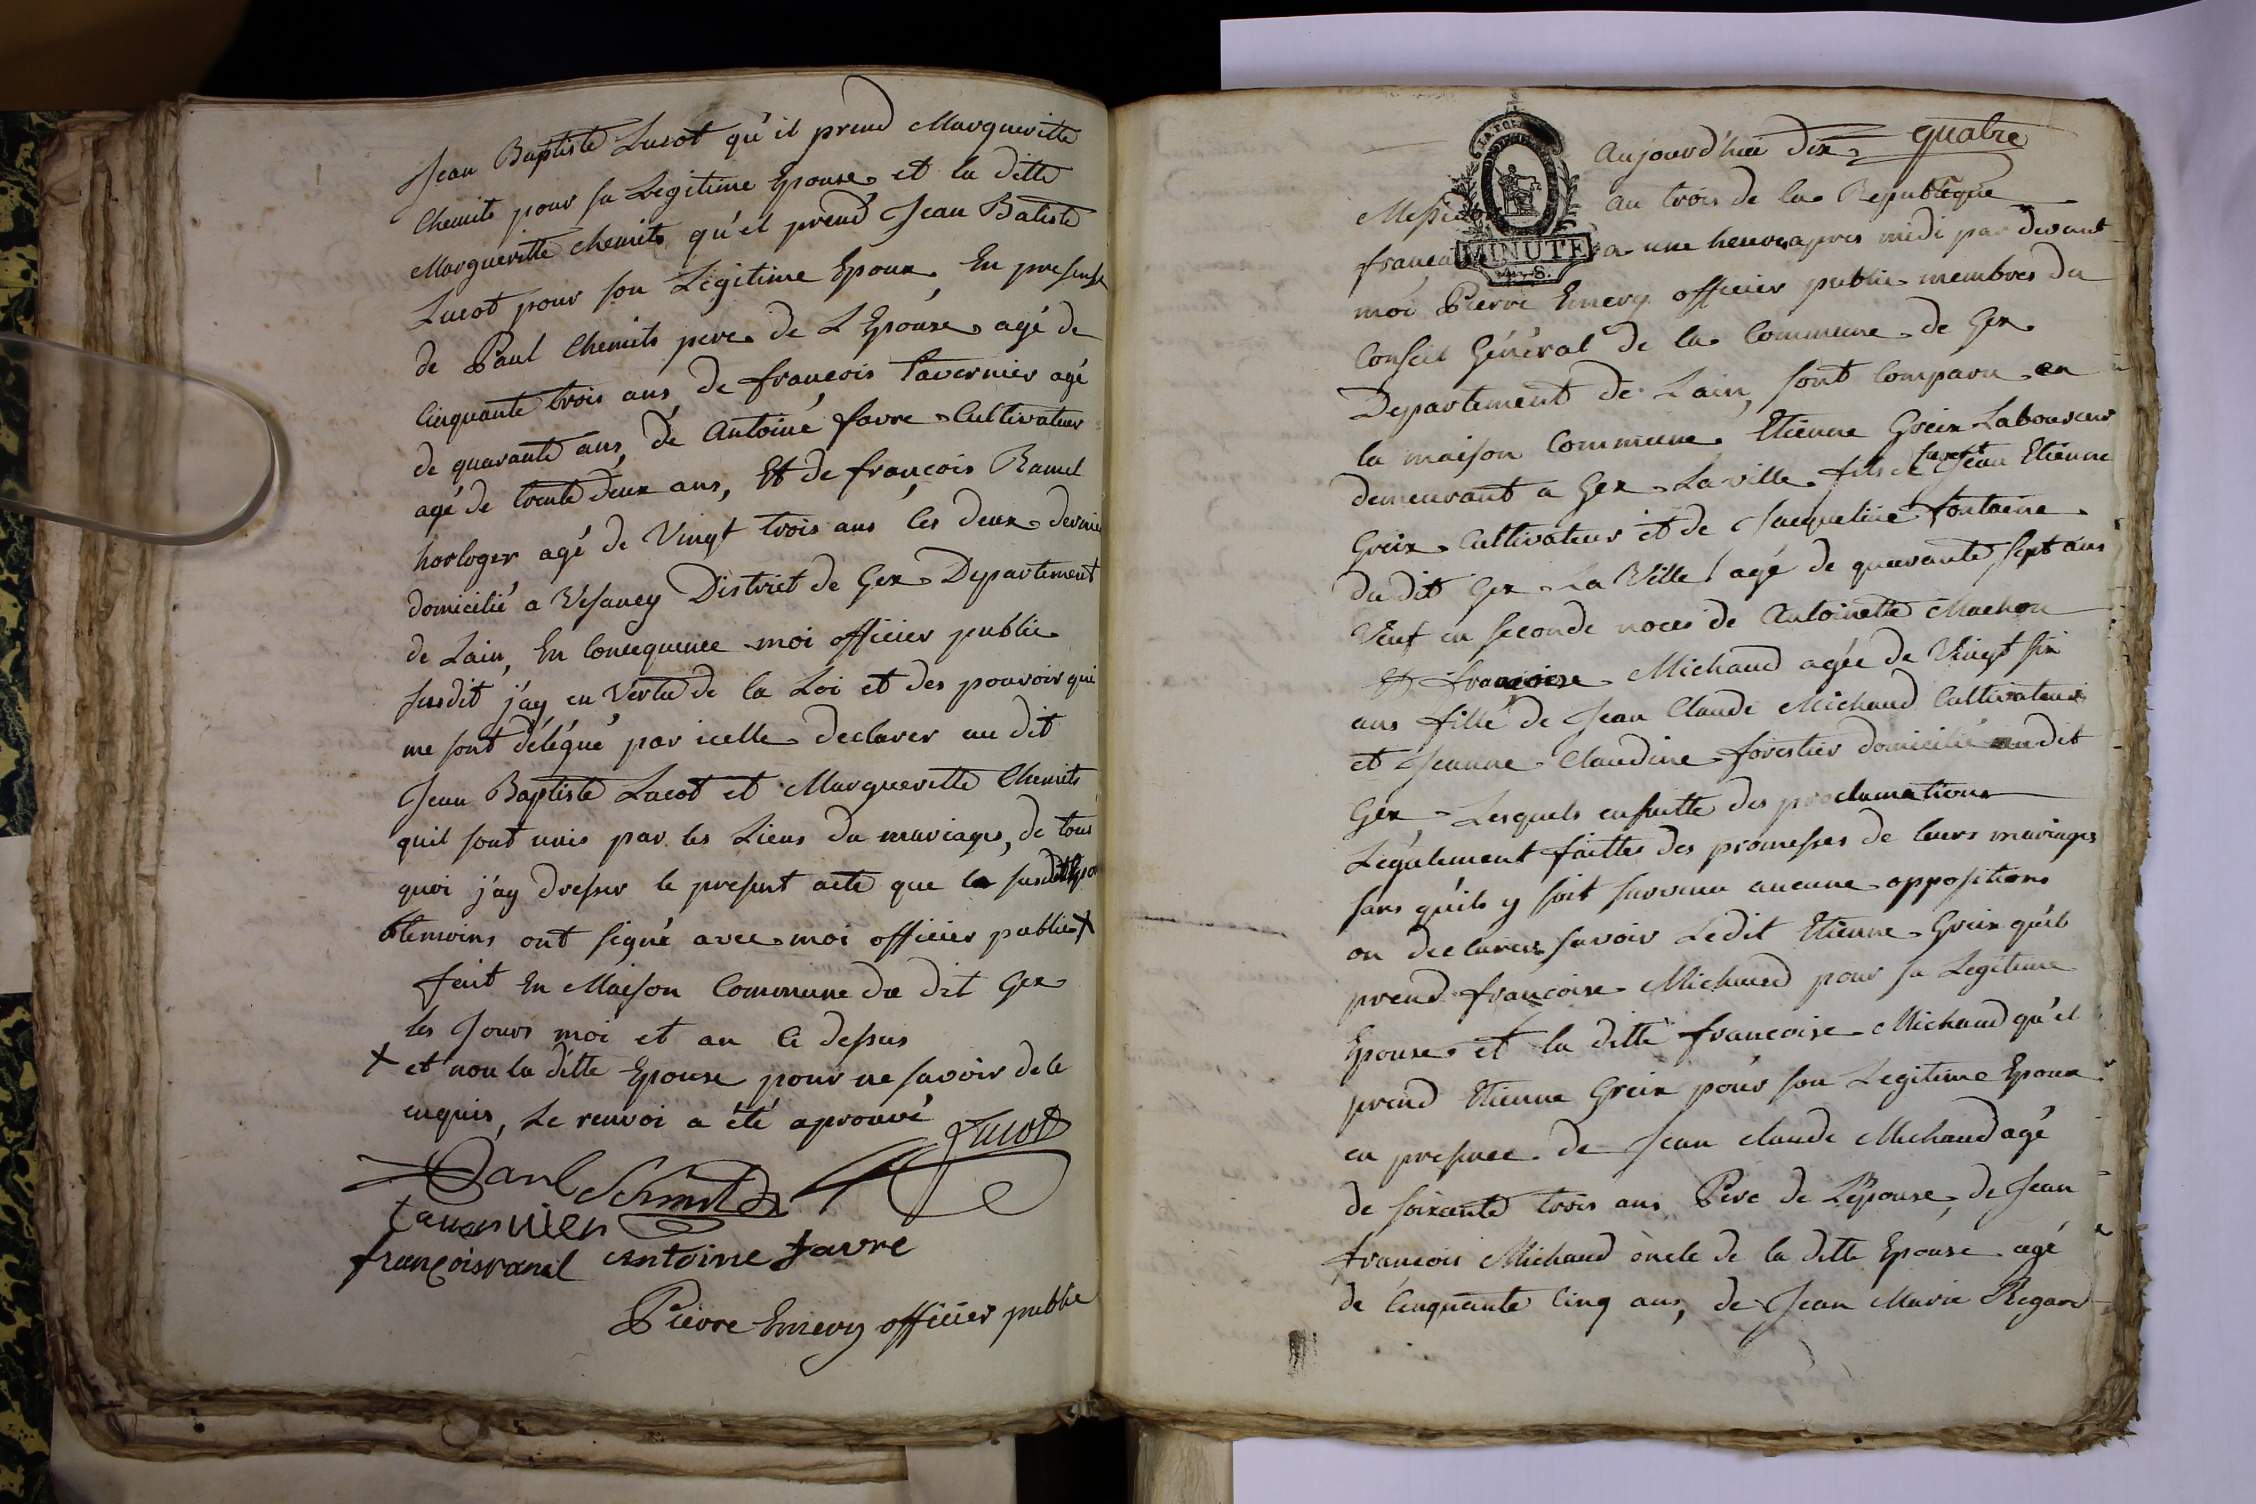 Jean Baptiste Lucot qu'il prend Margueritte
Chemits pour sa Legitime Epouse et la ditte
Margueritte chemits qu'el prend Jean Batiste
Lucot pour son Légitime Epoux. En presense
de Paul Chemits pere de L'Epouse agé de
Cinquante trois ans, de françois tavernier agé
de quarante ans, de Antoine favre Cultivateur
agé de trente deux ans, Et de françois Ramel
horloger agé de Vingt trois ans les deux dernier
domicilié a Vesancy District de Gex Departement
de Lain, En consequence moi officier public
susdit j'ay en Vertu de la Loi et des pouvoir qui
me sont délégué par icelle declarer au dit
Jean Baptiste Lucot et Margueritte Chemits
quil sont unis par les Liens du mariage, de tous
quoi j'ay dresser le present acte que le susdit Epou
& temoins ont signé avec moi officier public X
fait En Maison Commune du dit Gex
les Jours moi et an Ci dessus
X et non la ditte Epouse pour ne savoir de le
enquis, Le renvoi a été aprouvé
Lucot
Paul Schmidt
tavernier
françois ramel Antoine favre
Pierre Emery officier public
Aujourd'hui dix quatre
Messidor an trois de la Republique
françai MINUTE a une heure apres midi par devant
moi Pierre Emery officier public membres du
Conseil Général de la Commune de Gex
Departement de Lain, sont Comparu en
la maison Commune Etienne Greix Laboureur
demeurant a Gex La ville fils de Jean Etienne
Greix Cultivateur et de Jacqueline fontaine
du dit Gex La Ville agé de quarante sept ans
Veuf en seconde noces de Antoinette Machon
Et francoise Michaud agée de Vingt six
ans fille de Jean Claude Michaud Cultivateur
et Jeanne Claudine forestier domicilié au dit
Gex Lesquels ensuitte des proclamations
Légalement faittes des promesses de leurs mariages
sans qu'ils y soit survenu aucune oppositions
on declarer savoir Ledit Etienne Greix qu'il
prend francoise Michaud pour sa Legitime
Epouse et la ditte francoise Michaud qu'el
prend Etienne Greix pour son Legitime Epoux
en presence de Jean claude Michaud agé
de soixante trois ans Pere de L'Epouse, de Jean
francois Michaud oncle de la ditte Epouse agé
de Cinquante Cinq ans, de Jean Marie Regard